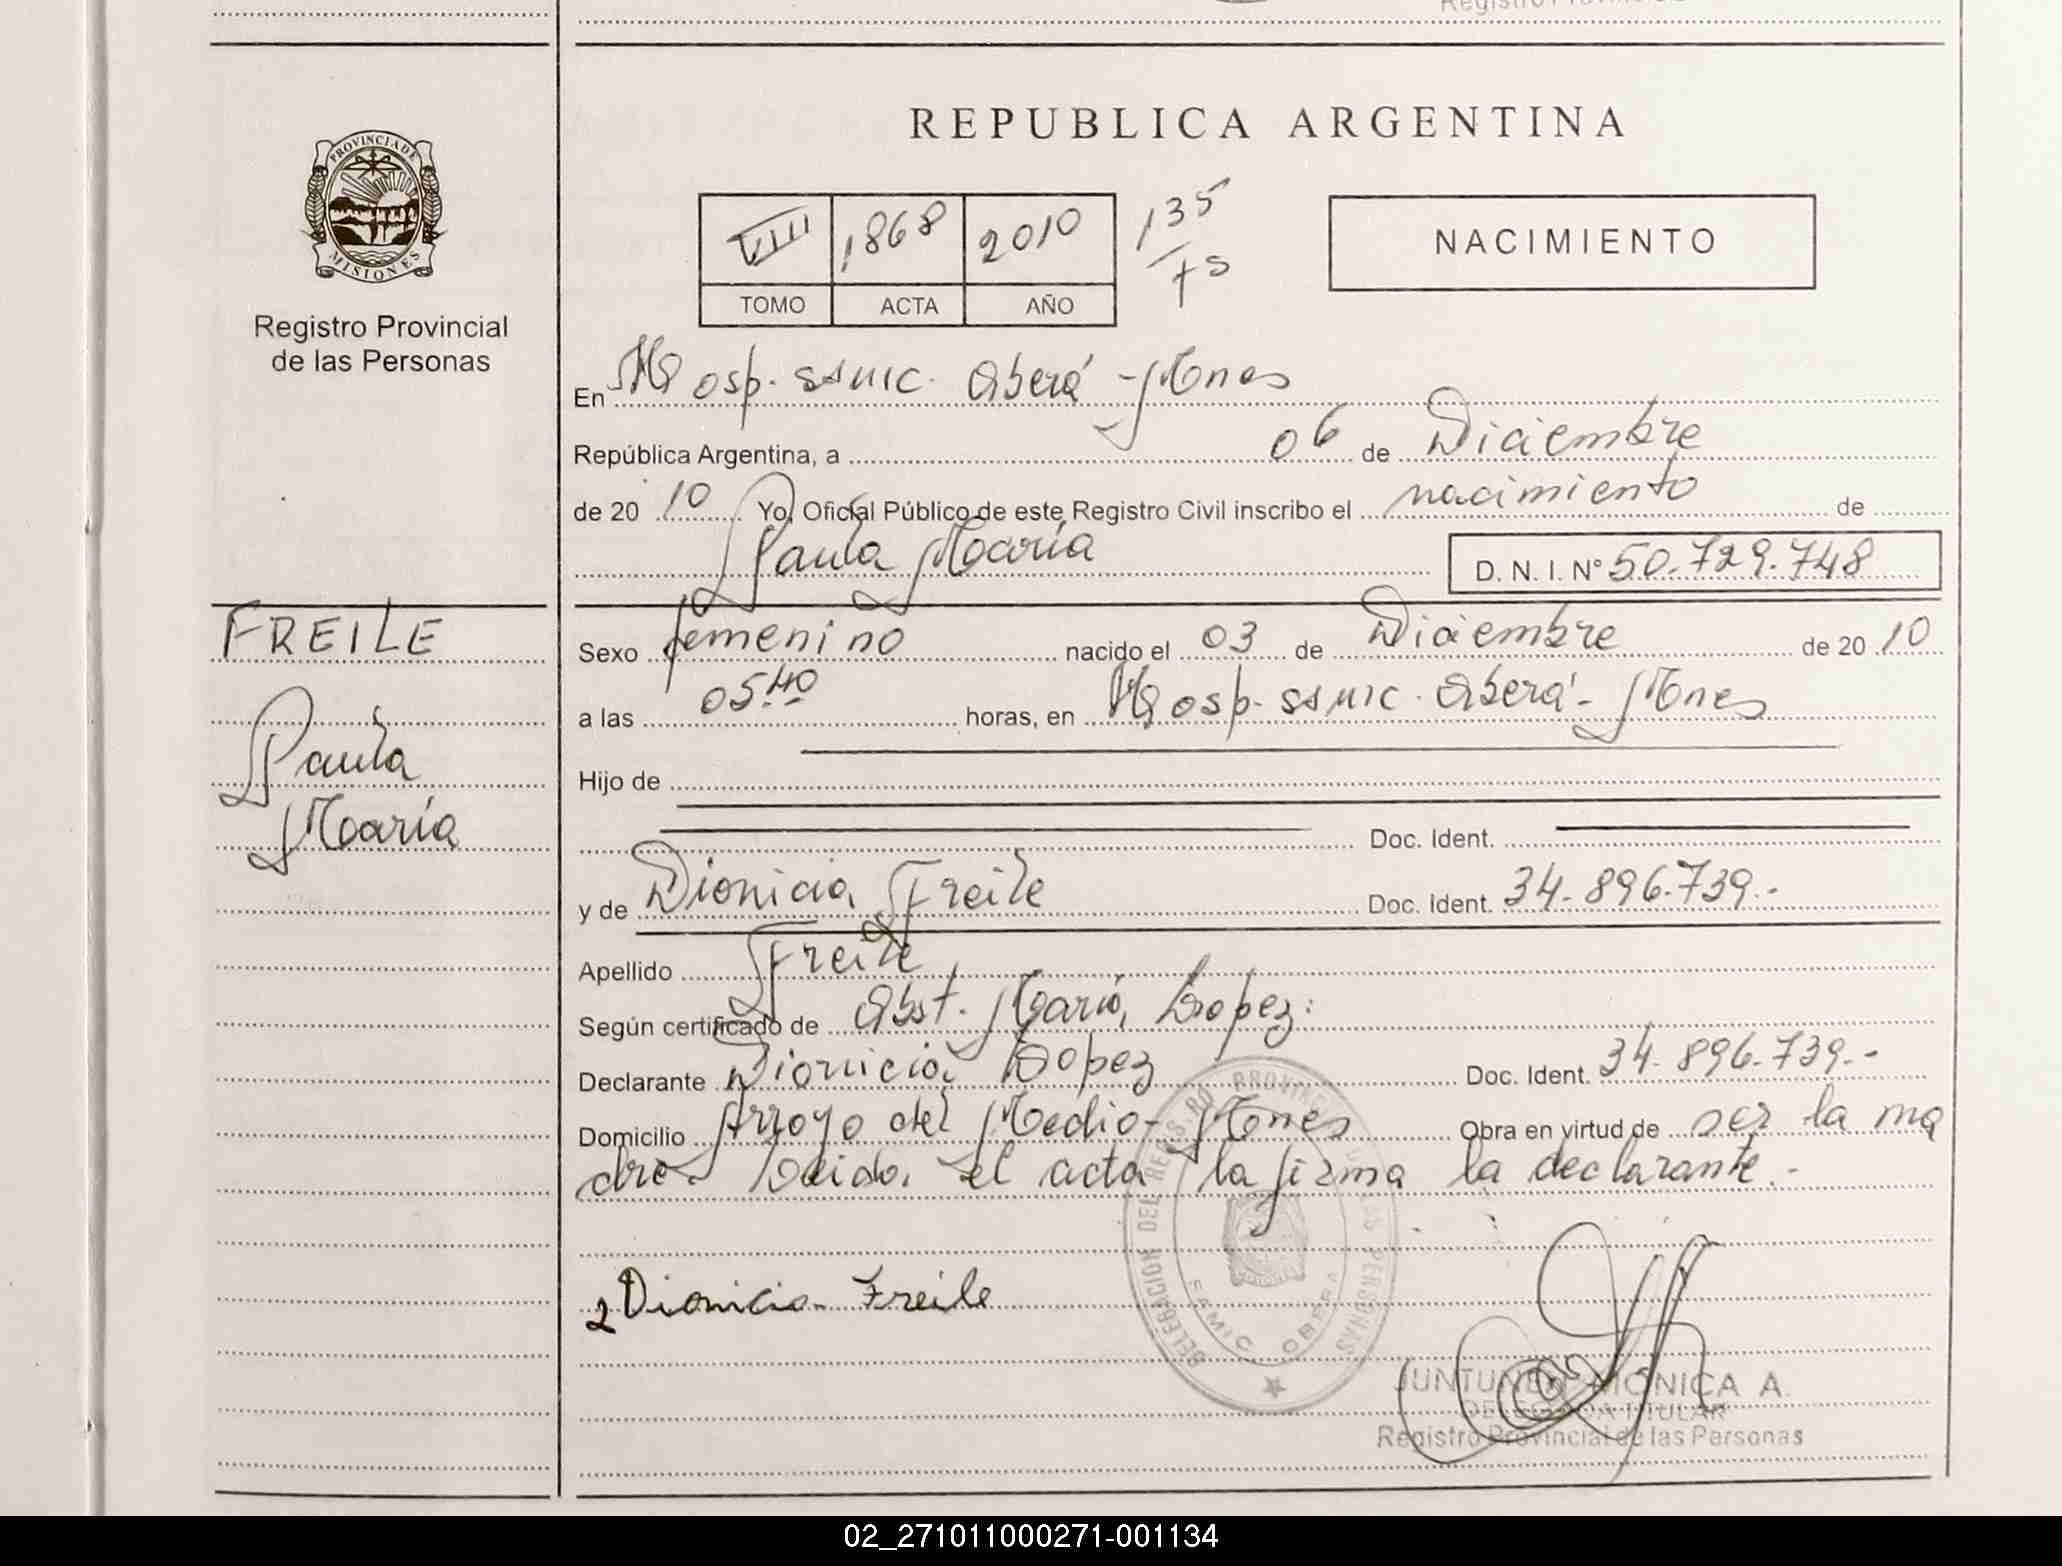 REPUBLICA ARGENTINA
PROVINCIA DE
MISIONES
Registro Provincial
de las Personas
VIII 1868 2010 135
TOMO ACTA AÑO 75
NACIMIENTO
En Hosp. SAMIC. Oberá - Mnes
República Argentina, a 06 de Diciembre
de 20 10 Yo, Oficial Público de este Registro Civil inscribo el nacimiento de
Paula María D. N. I. N° 50.729.748
FREILE
Paula
María
Sexo femenino nacido el 03 de Diciembre de 20 10
a las 05.40 horas, en Hosp. SAMIC. Oberá - Mnes
Hijo de
Doc. Ident.
y de Dionicia Freile Doc. Ident. 34.896.739.-
Apellido Freile
Según certificado de Obst. María Lopez.
Declarante Dionicia Lopez Doc. Ident. 34.896.739.-
Domicilio Arroyo del Medio - Mnes Obra en virtud de ser la ma
dre. Leida el acta la firma la declarante.-
Dionicia Freile
DELEGACION DEL REGISTRO PROVINCIAL DE LAS PERSONAS
SAMIC OBERA
MONICA A.
DELEGADA TITULAR
Registro Provincial de las Personas
02_271011000271-001134